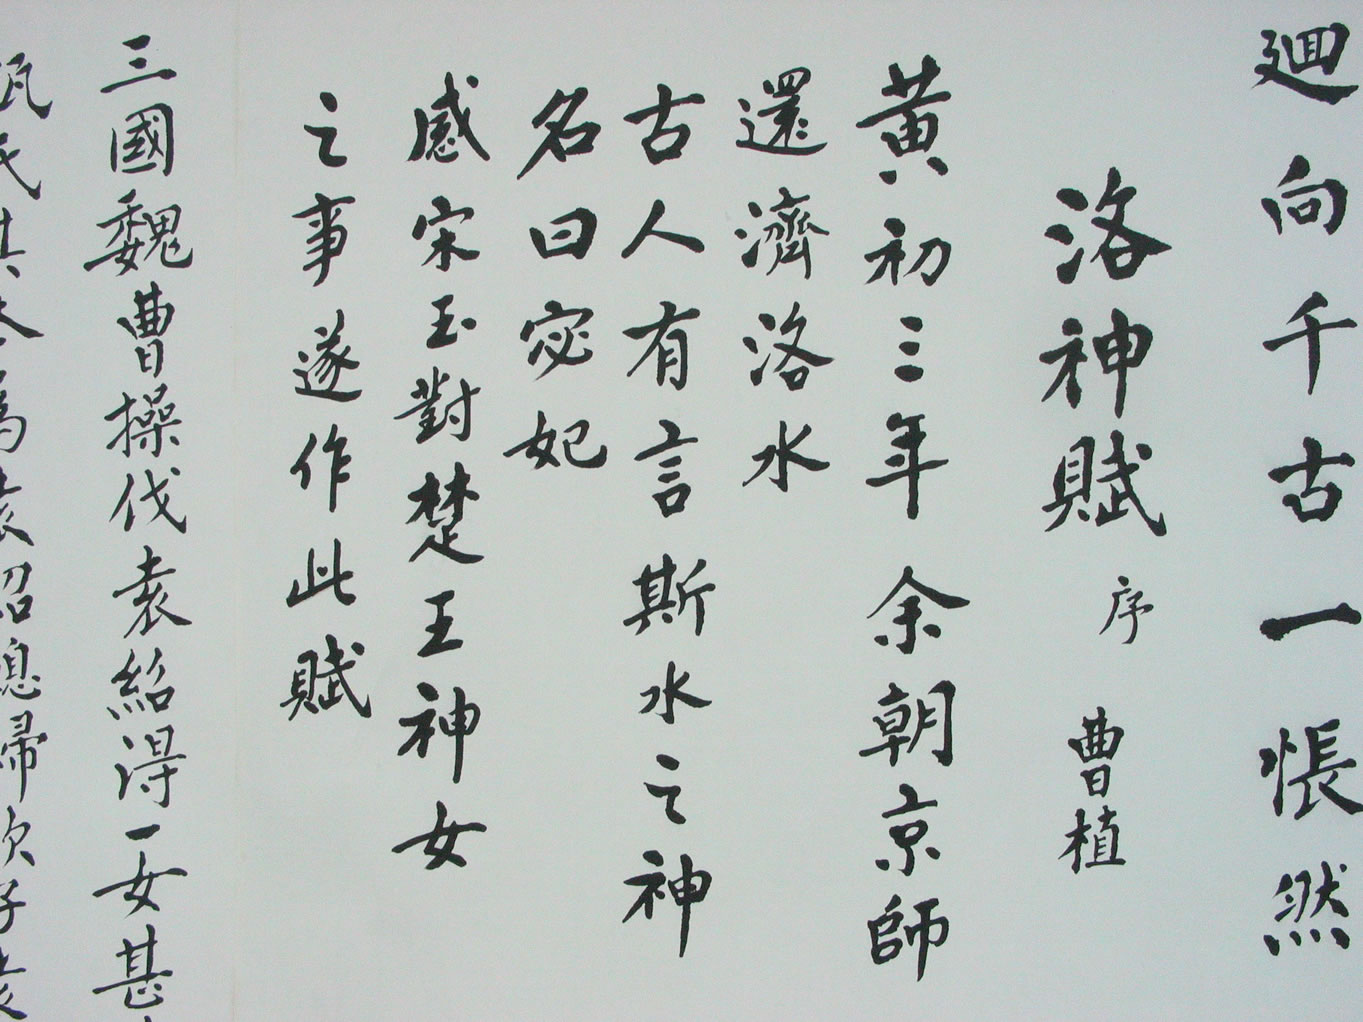 廻向千古一悵然
洛神賦 序 曹植
黃初三年余朝京師
還濟洛水
古人有言斯水之神
名曰宓妃
感宋玉對楚王神女
之事遂作此賦
三國魏曹操伐袁紹得一女甚
氏其本為袁紹媳婦次子袁